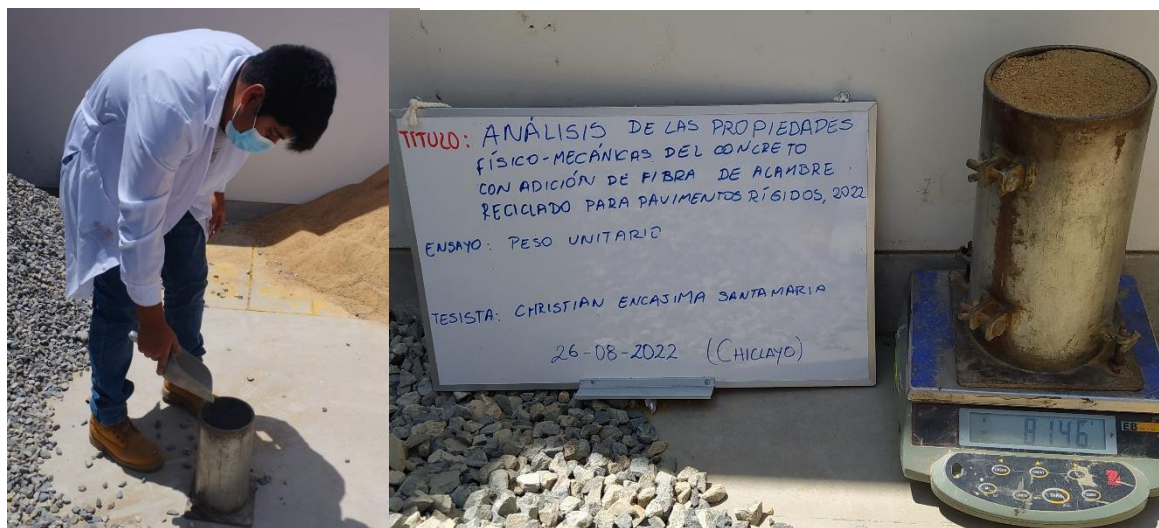 TITULO: ANÁLISIS DE LAS PROPIEDADES
FÍSICO-MECÁNICAS DEL CONCRETO
CON ADICIÓN DE FIBRA DE ALAMBRE
RECICLADO PARA PAVIMENTOS RÍGIDOS, 2022
ENSAYO: PESO UNITARIO
TESISTA: CHRISTIAN ENCAJIMA SANTAMARIA
26-08-2022 (CHICLAYO)
8146